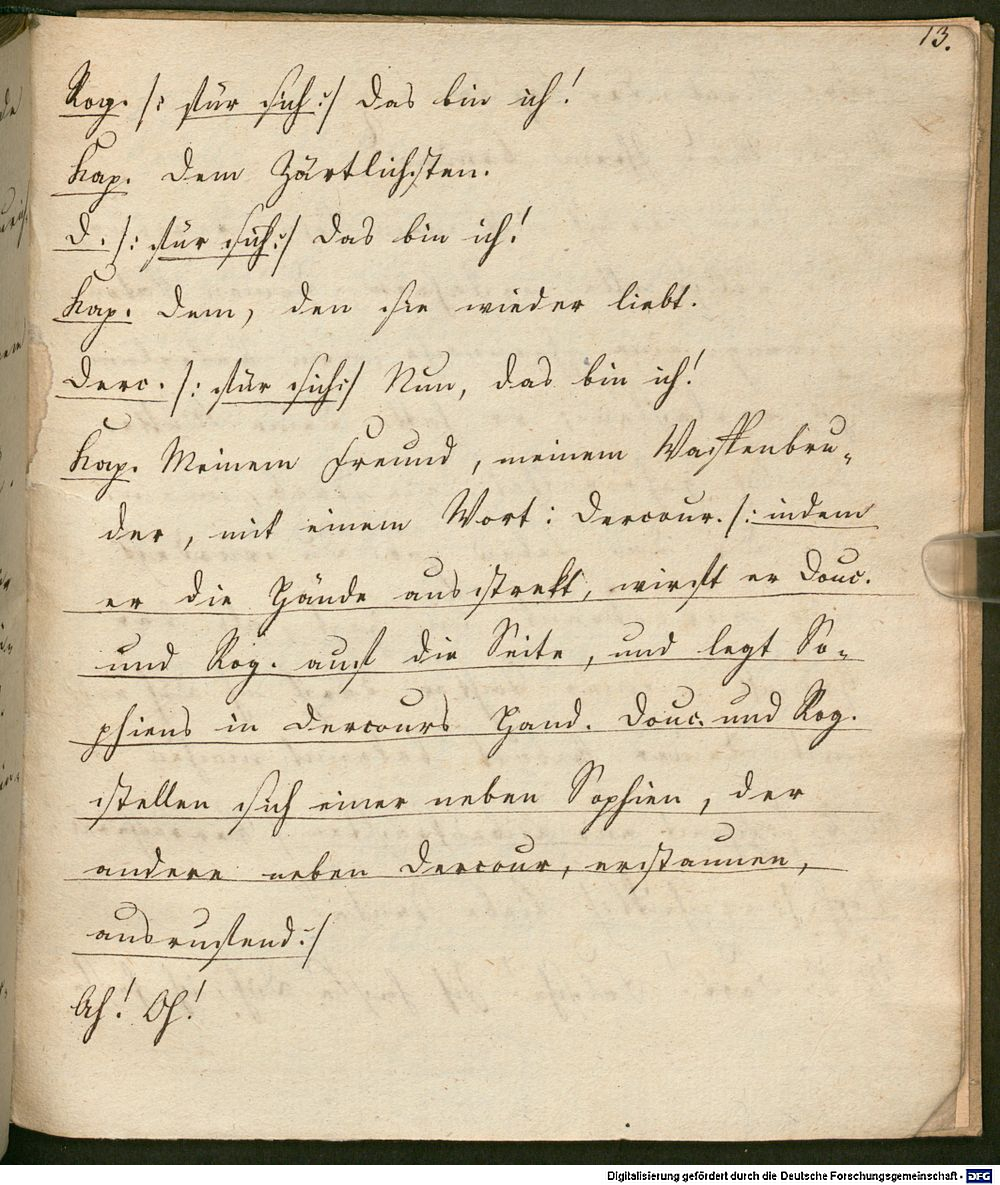 13.
Rog. /: für sich :/ Das bin ich!
Kap. Dem Zärtlichsten.
D. /: für sich :/ Das bin ich!
Kap. Dem, den sie wieder liebt.
Derc. /: für sich :/ Nun, das bin ich!
Kap. Meinem Freund, meinem Waffenbru-
der, mit einem Wort: Dercour. /: indem
er die Hände ausstrekt, wirft er Douc.
und Rog. auf die Seite, und legt So-
phiens in Dercours Hand. Douc. und Rog.
stellen sich einer neben Sophien, der
andere neben Dercour, erstaunen,
ausrufend :/
Ah! Oh!
Digitalisierung gefördert durch die Deutsche Forschungsgemeinschaft - DFG